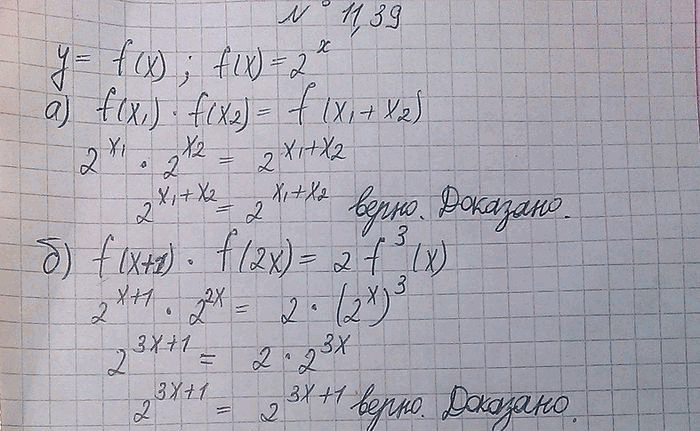 № 11,39
y = f(x) ; f(x) = 2^x
а) f(x₁) · f(x₂) = f(x₁ + x₂)
2^x₁ · 2^x₂ = 2^x₁+x₂
2^x₁+x₂ = 2^x₁+x₂ верно. Доказано.
б) f(x+1) · f(2x) = 2 f³(x)
2^x+1 · 2^2x = 2 · (2^x)³
2^3x+1 = 2 · 2^3x
2^3x+1 = 2^3x+1 верно. Доказано.